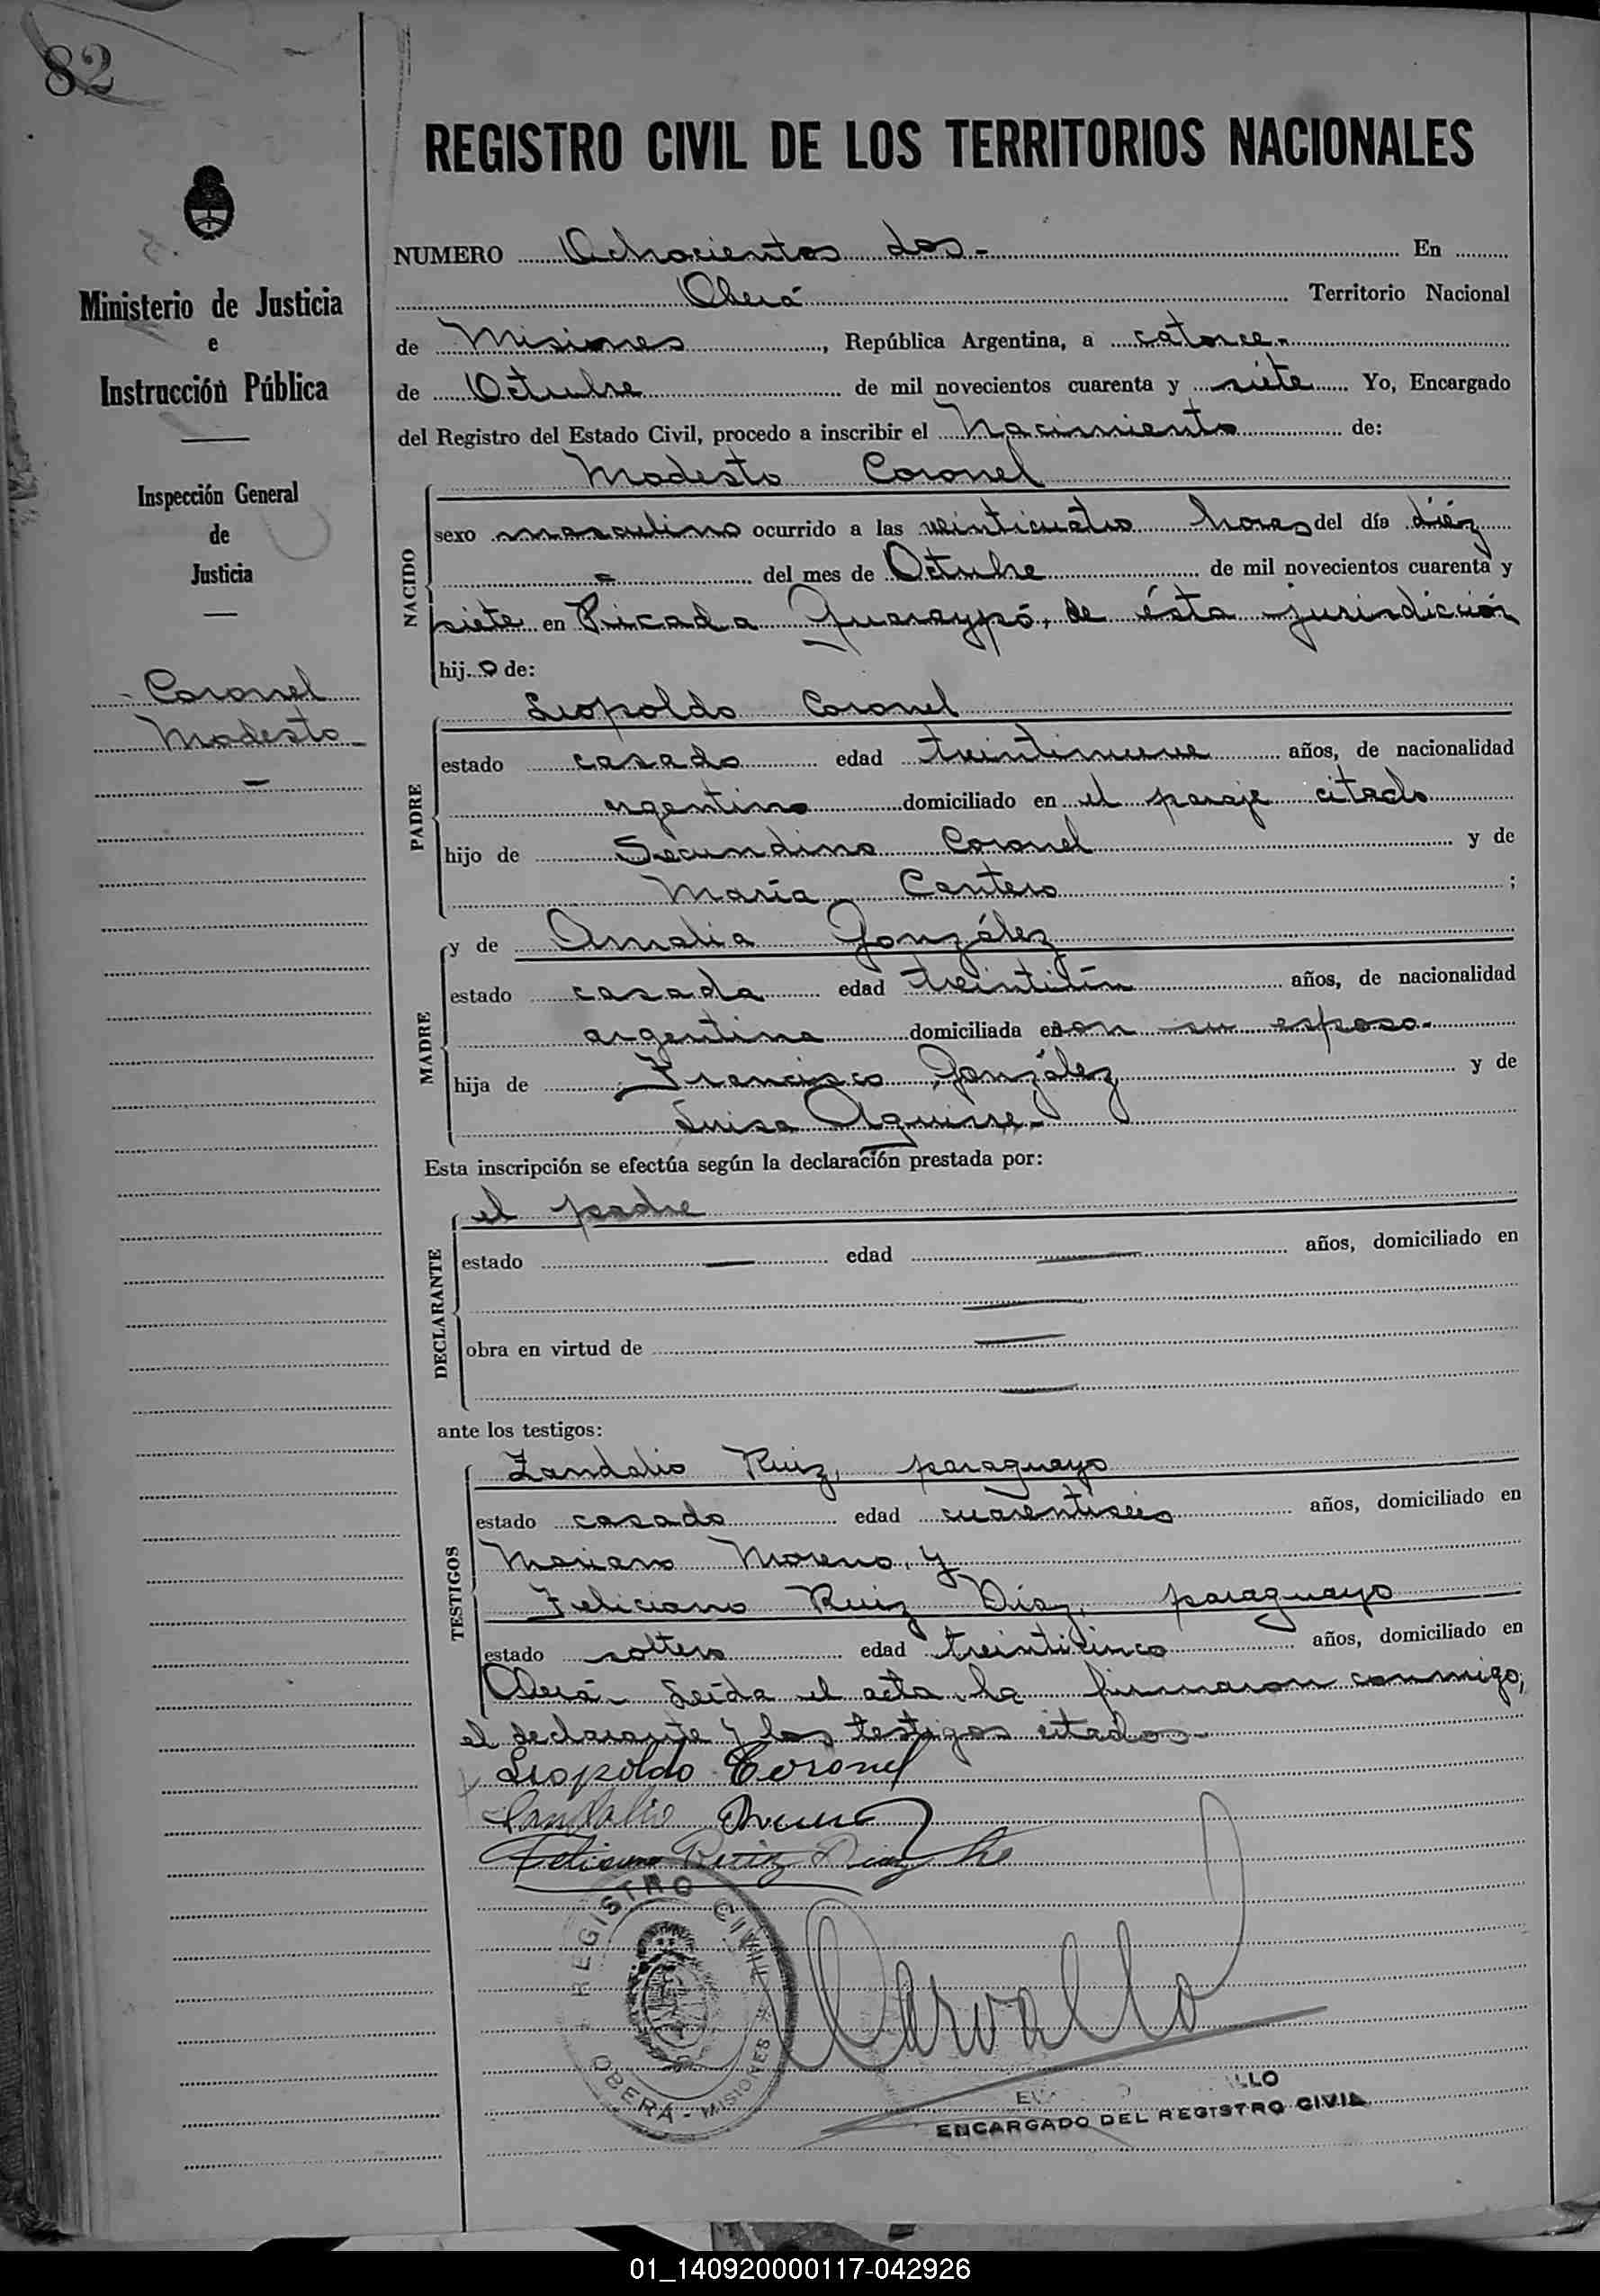 82
Ministerio de Justicia
e
Instrucción Pública
Inspección General
de
Justicia
Coronel
Modesto
REGISTRO CIVIL DE LOS TERRITORIOS NACIONALES
NUMERO Ochocientos dos.- En
Oberá Territorio Nacional
de Misiones, República Argentina, a catorce.
de Octubre de mil novecientos cuarenta y siete Yo, Encargado
del Registro del Estado Civil, procedo a inscribir el Nacimiento de:
Modesto Coronel
NACIDO
sexo masculino ocurrido a las veinticuatro horas del día diéz
del mes de Octubre de mil novecientos cuarenta y
siete en Picada Guaraypó, de ésta jurisdicción
hijo de:
PADRE
Leopoldo Coronel
estado casado edad treintinueve años, de nacionalidad
argentino domiciliado en el paraje citado
hijo de Secundino Coronel y de
María Cantero;
MADRE
y de Amalia González
estado casada edad treintiún años, de nacionalidad
argentina domiciliada con su esposo.
hija de Francisco González y de
Luisa Aguirre.
Esta inscripción se efectúa según la declaración prestada por:
DECLARANTE
el padre
estado — edad — años, domiciliado en
obra en virtud de
ante los testigos:
TESTIGOS
Zandalio Ruiz, paraguayo
estado casado edad cuarentiseis años, domiciliado en
Mariano Moreno, y
Feliciano Ruiz Díaz, paraguayo
estado soltero edad treinticinco años, domiciliado en
Oberá. Leída el acta la firmaron conmigo,
el declarante y los testigos citados.
Leopoldo Coronel
Feliciano Ruiz Diaz
REGISTRO CIVIL
OBERÁ - MISIONES
Carvallo
LLO
ENCARGADO DEL REGISTRO CIVIL
01_140920000117-042926